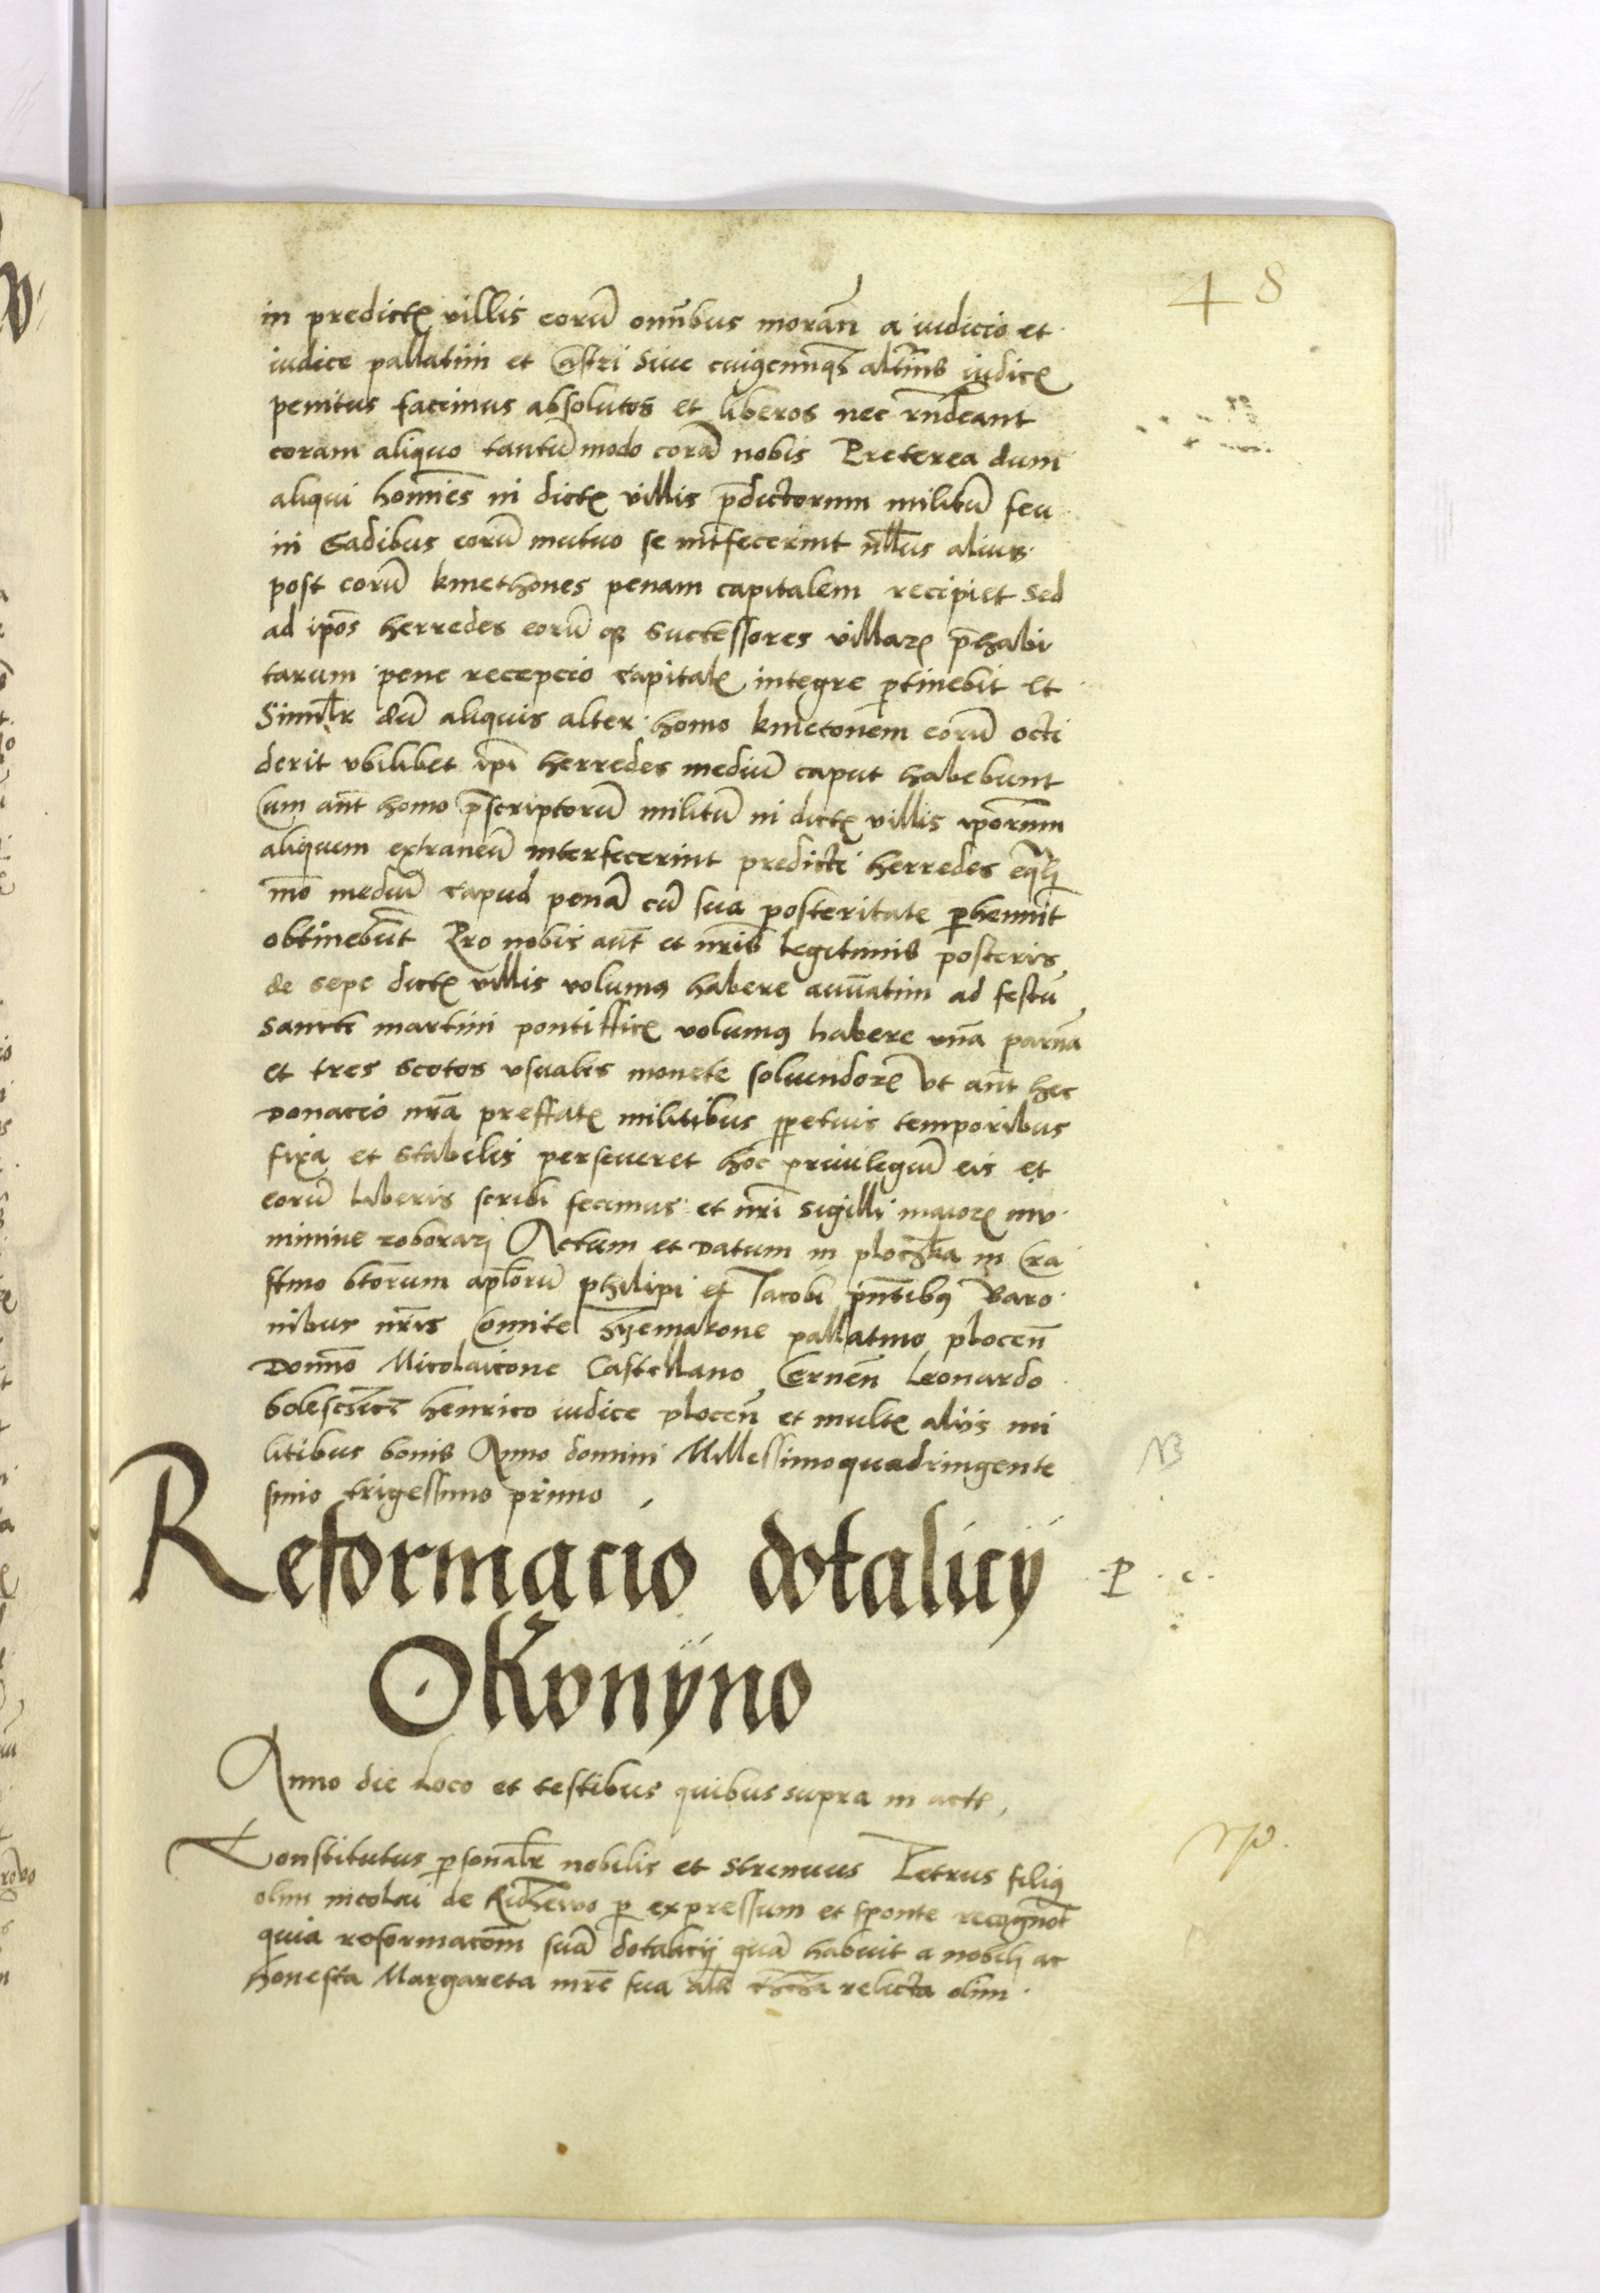 48
in predictꝭ villis eorū om̄ibus moran̄ a iudicio et
iudice pallatini et Castri Siue cuiꝰcunqꝫ alteriꝰ iudicꝭ
penitus facimus absolutos et liberos nec rn̄deant
coram aliquo tantūmodo corā nobis Preterea dum
aliqui homīes in dictꝭ villis p̄dictorum militū seu
in Sadibus eorū mutuo se int̄fecerint nll̄us alius
post eorū kmethones penam capitalem recipiet Sed
ad ip̄os herredes eorū qꝫ Successores villaꝝ p̄habi
tarum pene recepcio capitalꝭ integre ꝑtinebit Et
Simil̄r dū aliquis alter homo kmetonem eorū occi
derit vbilibet ip̄i herredes mediū caput habebunt
Cum aūt homo p̄scriptorū militū in dictꝭ villis ip̄orum
aliquem extraneū interfecerint predicti herredes eq̄li
mō mediū capud penā cū sua posteritate ꝑhennit̄
obtinebūt Pro nobis aūt et nr̄is legitimis posteris
de sepe dictꝭ villis volumꝰ habere annuatim ad festū
Sancti martini pontifficꝭ volumꝰ habere vnā parnā
et tres Scotos vsualis monete soluendoꝝ Vt aūt hec
donacio nr̄a preffatꝭ militibus ꝑpetuis temporibus
fixa et Stabilis perseueret hoc priuilegiū eis et
eorū liberis scribi fecimus et nr̄i sigilli maioꝝ mu
nimine roborari Actum et Datum in ploczka in Cra
stino btōrum apl̄orū philipi et Jacobi pn̄tibꝰ Baro
nibus nr̄is Comite Szyemakone pallatino plocen̄
Dom̄no Nicolaicone Castellano Cernen̄ Leonardo
henrico iudice plocen̄ et multꝭ aliis mi
litibus bonis Anno domini Millessimoquadringente
simo trigessimo primo
NB
Reformacio dotalicij
P . c .
Okvnÿno
Anno die Loco et testibus quibus supra in actꝭ
Constitutus ꝑsonal̄r nobilis et Strenuus Petrus filiꝰ
olim nicolai de ꝑ expressum et sponte recogno͞t
quia reformacōm suā dotalicij quā habuit a nobili ac
honesta Margareta mr̄e sua al̄s relicta olim